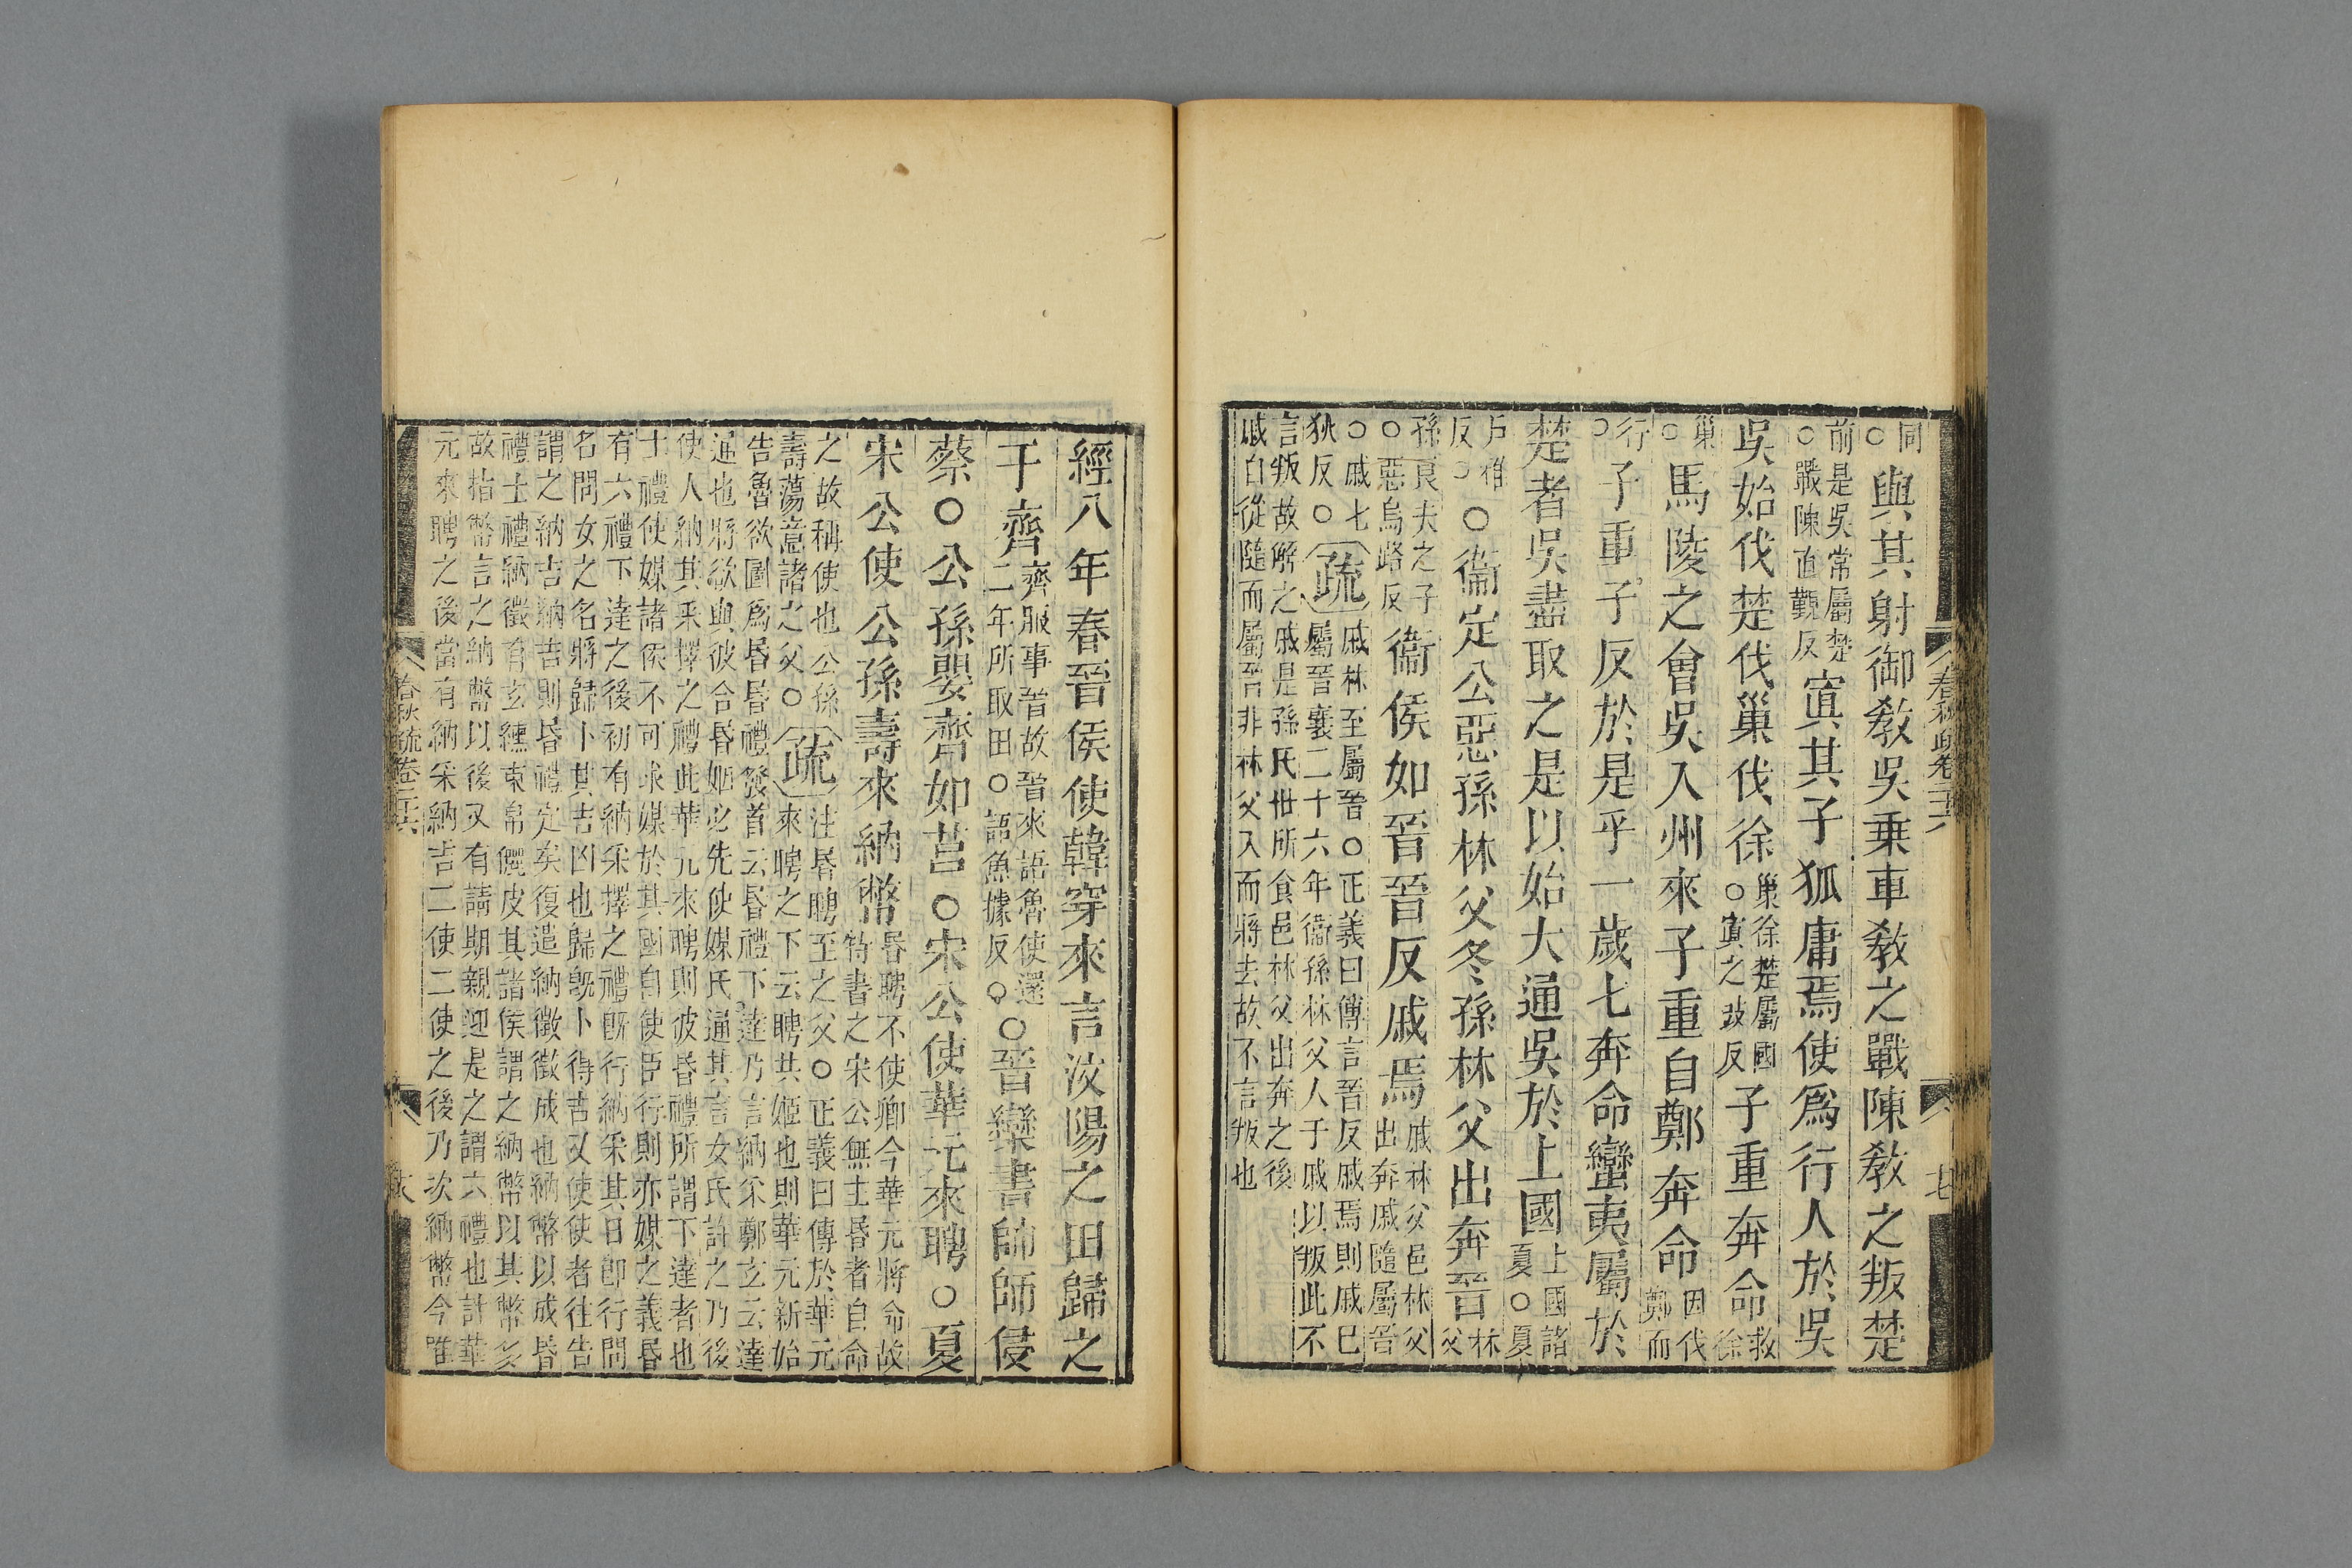 同
○與其射御敎吳乗車敎之戰陳敎之叛楚
前是吳常屬楚
○戰陳直覲反寘其子狐庸焉使爲行人於吳
吳始伐楚伐巢伐徐
巢徐楚屬國
○寘之豉反
子重奔命
救徐
巢
○馬陵之會吳入州來子重自鄭奔命
因伐
鄭而
行
○子重子反於是乎一歲七奔命蠻夷屬於
楚者吳盡取之是以始大通吳於上國
上國諸
夏○夏
戶雅
反○
○衞定公惡孫林父冬孫林父出奔晉
林
父
孫良夫之子
○惡烏路反
衞侯如晉晉反戚焉
戚林父邑林父
出奔戚隨屬晉
○戚七
狄反○
疏
戚林至屬晉○正義曰傳言晉反戚焉則戚已
屬晉襄二十六年衞孫林父入于戚以叛此不
言叛故解之戚是孫氏世所食邑林父出奔之後
戚自從隨而屬晉非林父入而將去故不言叛也
春秋疏卷二十六
七
經八年春晉侯使韓穿來言汶陽之田歸之
于齊
齊服事晉故晉來語魯使還
二年所取田○語魚據反○
○晉欒書帥師侵
蔡○公孫嬰齊如莒○宋公使華元來聘○夏
宋公使公孫壽來納幣
昬聘不使卿今華元將命故
特書之宋公無主昬者自命
之故稱使也公孫
壽蕩意諸之父○
疏
注昬聘至之父○正義曰傳於華元
來聘之下云聘共姬也則華元新始
告魯欲圖爲昬昬禮發首云昬禮下達乃言納采鄭玄云達
通也將欲與彼合昬姻必先使媒氏通其言女氏許之乃後
使人納其采擇之禮此華元來聘則彼昬禮所謂下達者也
士禮使媒諸侯不可求媒於其國自使臣行則亦媒之義昬
有六禮下達之後初有納采擇之禮旣行納采其日卽行問
名問女之名將歸卜其吉凶也歸旣卜得吉又使使者往告
謂之納吉納吉則昬禮定矣復遣納徵徵成也納幣以成昬
禮士禮納徵有玄纁束帛儷皮其諸侯謂之納幣以其幣多
故指幣言之納幣以後又有請期親迎是之謂六禮也計華
元來聘之後當有納采納吉二使二使之後乃次納幣今唯
春秋疏卷二十六